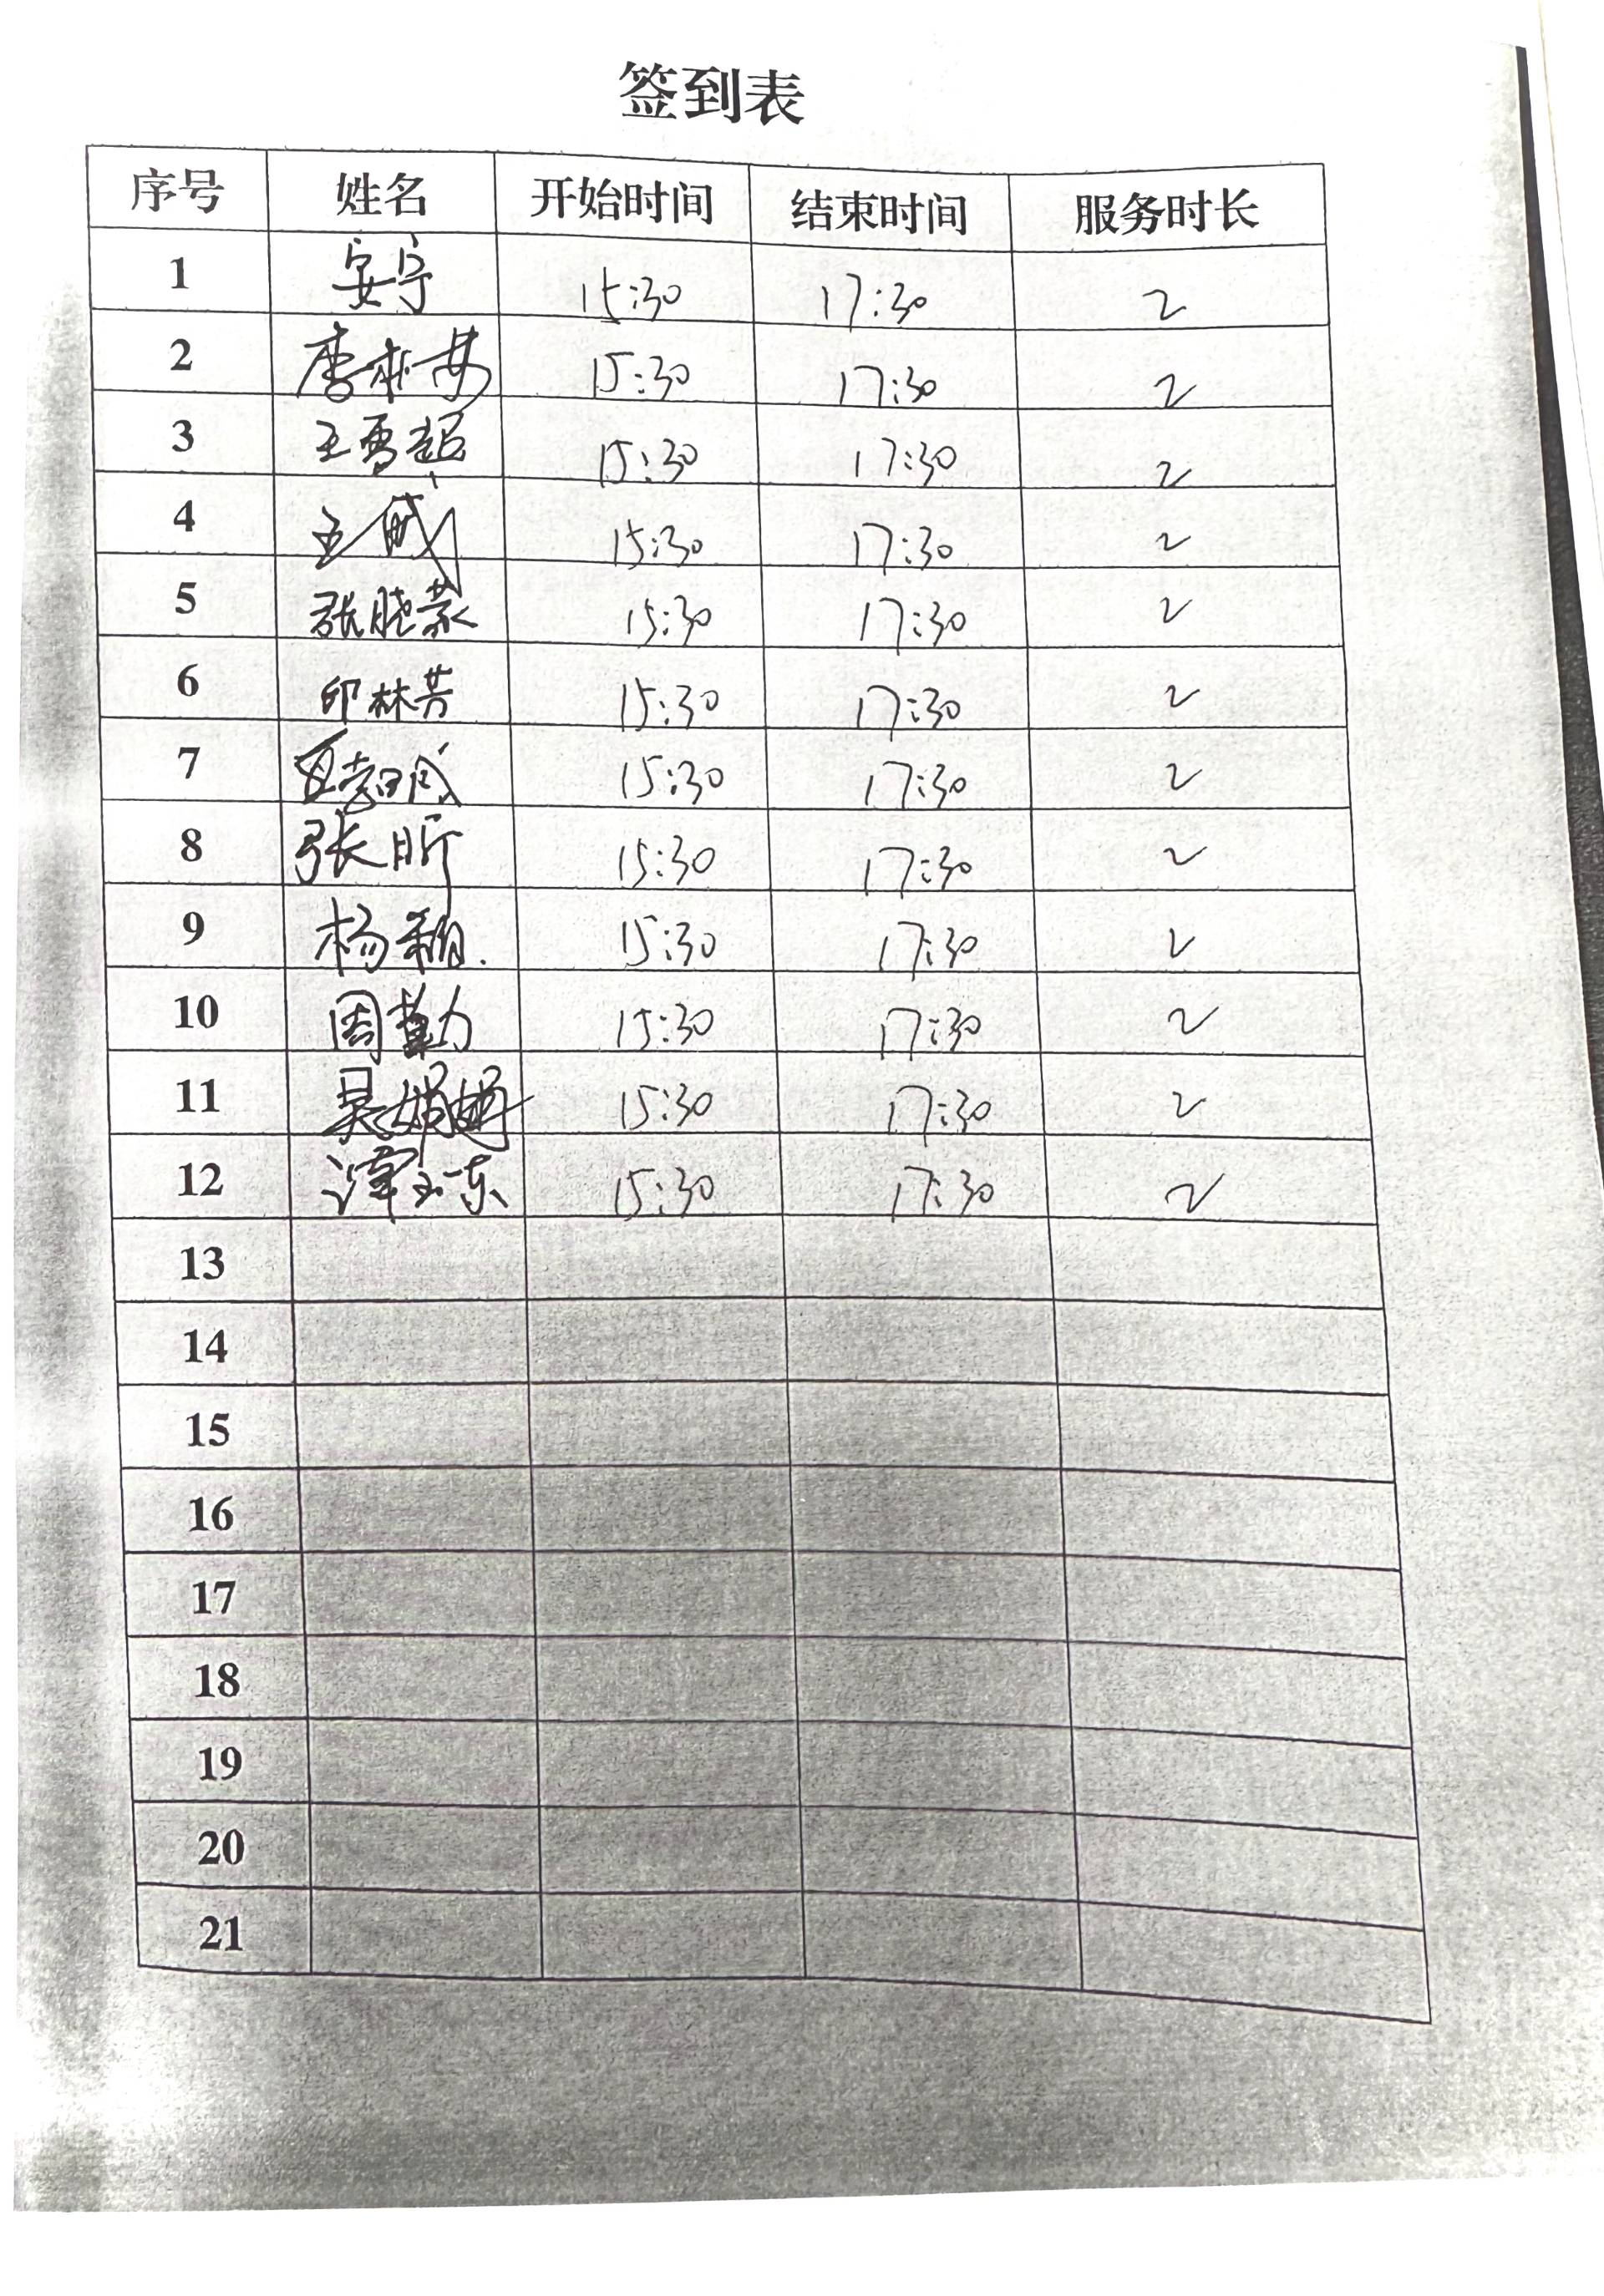 签到表
序号 姓名 开始时间 结束时间 服务时长
1 安宁 15:30 17:30 2
2 李 15:30 17:30 2
3 王雪超 15:30 17:30 2
4 王威 15:30 17:30 2
5 张晓蒙 15:30 17:30 2
6 印林芳 15:30 17:30 2
7 15:30 17:30 2
8 张昕 15:30 17:30 2
9 杨颖 15:30 17:30 2
10 周勤 15:30 17:30 2
11 吴娟娟 15:30 17:30 2
12 谭玉东 15:30 17:30 2
13
14
15
16
17
18
19
20
21